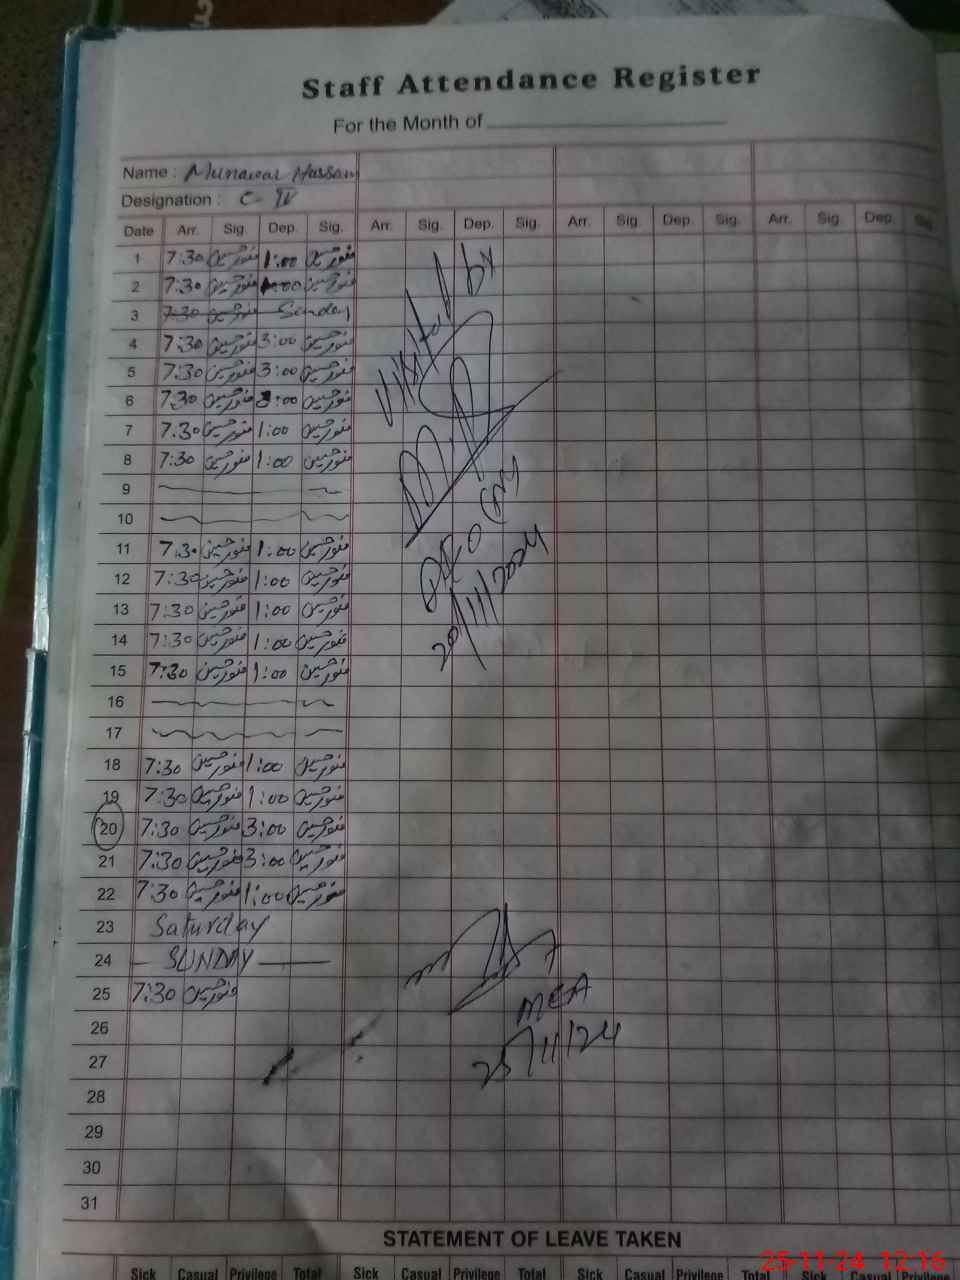 Staff Attendance Register
For the Month of
Name : Munawar Hussain
Designation : C-IV
Date Arr. Sig. Dep. Sig. Arr. Sig. Dep. Sig. Arr. Sig. Dep. Sig. Arr. Sig. Dep. Sig.
1 7:30 منور حسین 1:00 منور حسین
2 7:30 منور حسین 1:00 منور حسین
3 7:30 منور حسین Sunday
4 7:30 منور حسین 3:00 منور حسین
5 7:30 منور حسین 3:00 منور حسین
6 7:30 منور حسین 3:00 منور حسین
7 7:30 منور حسین 1:00 منور حسین
8 7:30 منور حسین 1:00 منور حسین
9
10
11 7:30 منور حسین 1:00 منور حسین
12 7:30 منور حسین 1:00 منور حسین
13 7:30 منور حسین 1:00 منور حسین
14 7:30 منور حسین 1:00 منور حسین
15 7:30 منور حسین 1:00 منور حسین
16
17
18 7:30 منور حسین 1:00 منور حسین
19 7:30 منور حسین 1:00 منور حسین
20 7:30 منور حسین 3:00 منور حسین
21 7:30 منور حسین 3:00 منور حسین
22 7:30 منور حسین 1:00 منور حسین
23 Saturday
24 SUNDAY
25 7:30 منور حسین
26
27
28
29
30
31
Visited by
DEO
20/11/2024
MEA
25/11/24
STATEMENT OF LEAVE TAKEN
Sick Casual Privilege Total Sick Casual Privilege Total Sick Casual Privilege Total Sick Casual
25-11-24 12:16